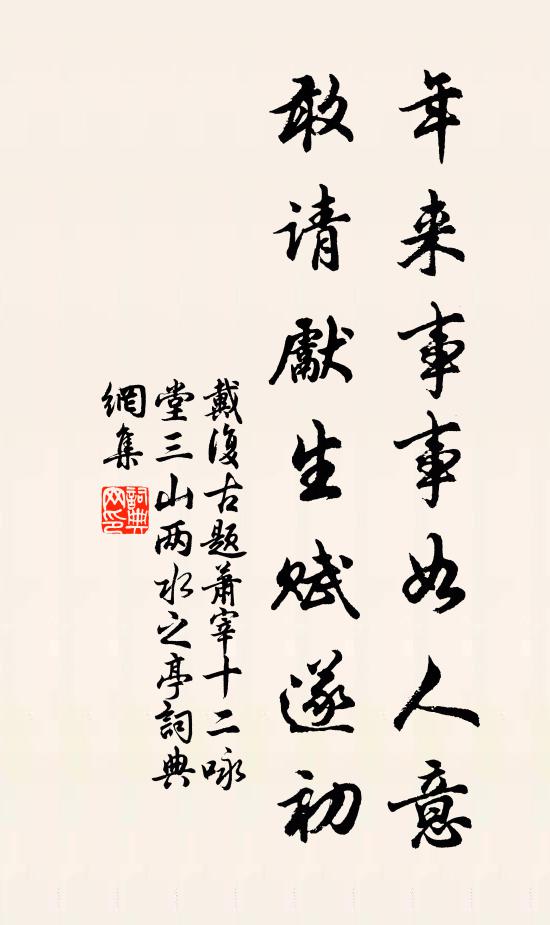 年来事事如人意
敢请獻生赋遂初
戴復古題蕭宰十二咏
堂三山两水之亭詞典
網集
詞典
网印